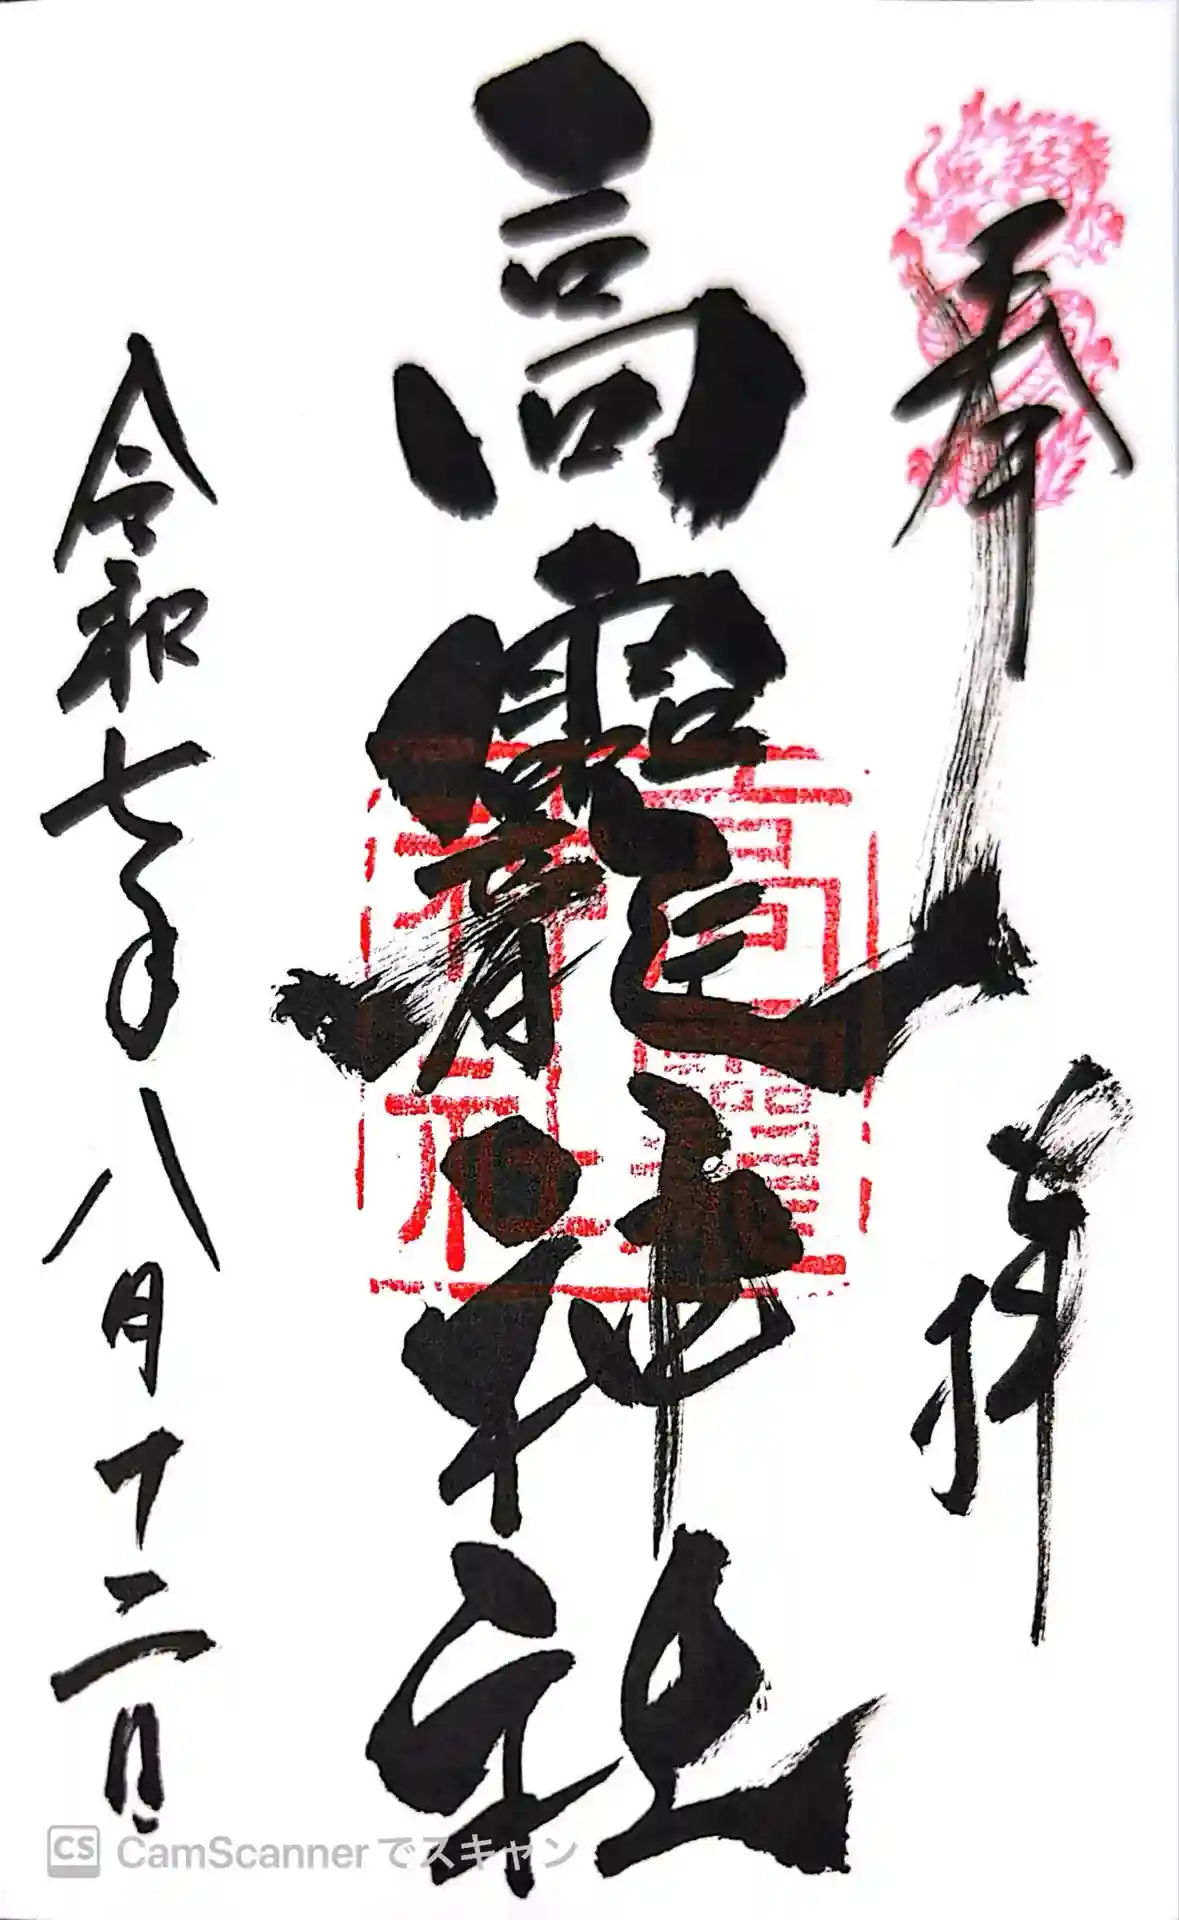 奉拝
高龗神社
令和七年八月十二日
高龗神社
CS CamScannerでスキャン